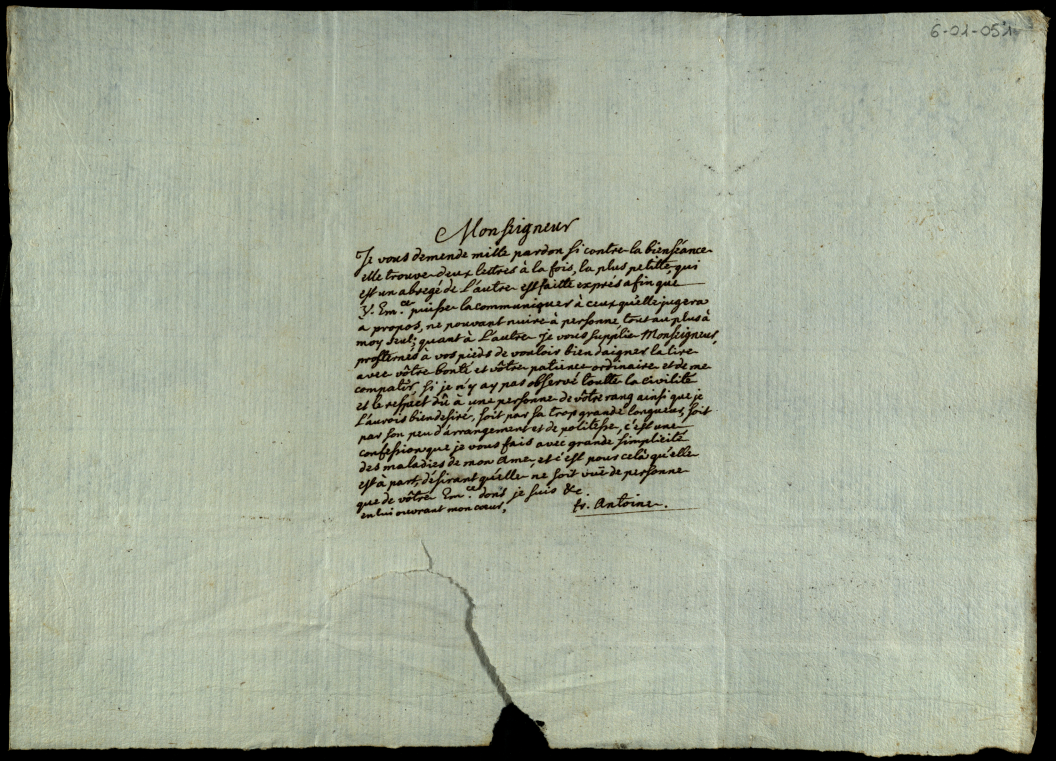 6-01-051
Monseigneur
Je vous demende mille pardon si contre la bienséance
elle trouve deux lettres à la fois, la plus petitte, qui
est un abregé de L'autre est faitte exprés afin que
V. Em.ce puisse la communiquer à ceux qu'elle jugera
a propos, ne pouvant nuire à personne tout au plus à
moy seul; quant à L'autre Je vous supplie Monseigneur,
prosternés à vos pieds de vouloir bien daigner la lire
avec vôtre bonté et vôtre patience ordinaire et de me
compatir, si je n'y ay pas observé toutte la civilité
et le respect dû à une personne de vôtre rang ainsi que je
L'aurois bien desiré, soit par sa trop grande longueur, soit
par son peu d'arrangement et de politesse, c'est une
confession que je vous fais avec grande simplicité
des maladies de mon ame, et c'est pour celà qu'elle
est à part, désirant qu'elle ne soit vuë de personne
que de vôtre Em.ce dont je suis &c.
en lui ouvrant mon cœur,
fr. Antoine.